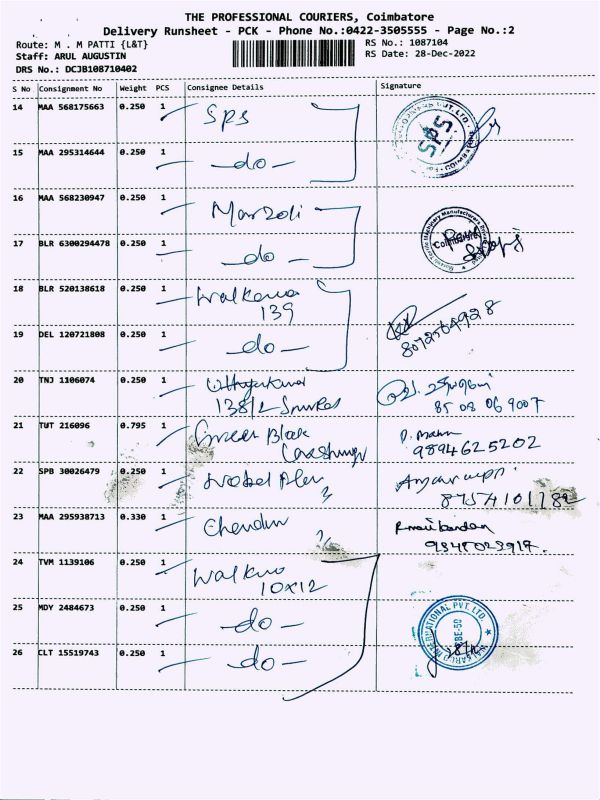 THE PROFESSIONAL COURIERS, Coimbatore
Delivery Runsheet - PCK - Phone No.:0422-3505555 - Page No.:2
Route: M . M PATTI {L&T}
RS No.: 1087104
Staff: ARUL AUGUSTIN
RS Date: 28-Dec-2022
DRS No.: DCJB108710402
S No Consignment No Weight PCS Consignee Details Signature
14 MAA 568175663 0.250 1 SPS
SPS
15 MAA 295314644 0.250 1 -do-
16 MAA 568230947 0.250 1
17 BLR 6300294478 0.250 1 -do-
Coimbatore
18 BLR 520138618 0.250 1
139
19 DEL 120721808 0.250 1 -do-
20 TNJ 1106074 0.250 1
138/2
85 08 06 9007
21 TUT 216096 0.795 1 Green Block
9894625202
22 SPB 30026479 0.250 1
8754101182
23 MAA 295938713 0.330 1
24 TVM 1139106 0.250 1
10x12
25 MDY 2484673 0.250 1 -do-
INTERNATIONAL PVT. LTD.
26 CLT 15519743 0.250 1 -do-